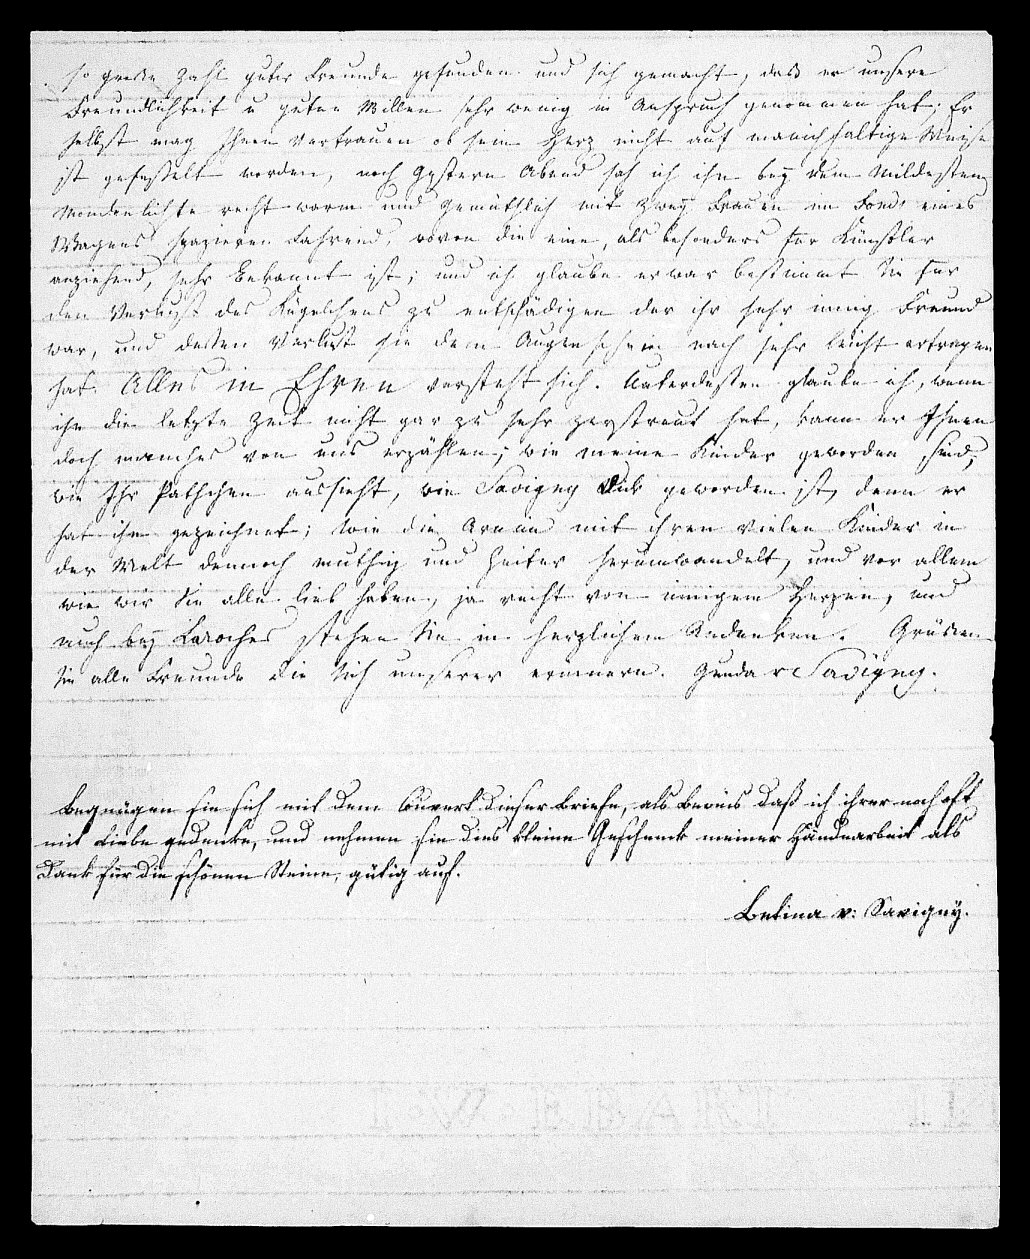 so große Zahl guter Freunde gefunden und sich gemacht, daß er unsere
Freundlichkeit u guten Willen sehr wenig in Anspruch genommen hat; Er
selbst mag Ihnen vertrauen ob sein Herz nicht auf manichfaltige Weise
ist gefesselt worden, noch gestern Abend sah ich ihn bey dem mildesten
Mondenlichte recht warm und gemüthlich mit zwey Frauen im Fond eines
Wagens spazieren fahrend, wovon die eine, als besonders für Künstler
anziehend, sehr bekannt ist; und ich glaube er war bestimmt Sie für
den Verlust des Kügelchens zu entschädigen der ihr sehr innig Freund
war, und dessen Verlust sie dem Augenschein nach sehr leicht ertragen
hat. Alles in Ehren versteht sich. Unterdessen glaube ich, wenn
ihn die letzte Zeit nicht gar zu sehr zerstreut hat, kann er Ihnen
doch manches von uns erzählen; wie meine Kinder geworden sind,
wie Ihr Pathchen aussieht, wie Savigny dick geworden ist, denn er
hat ihn gezeichnet; wie die Arnim mit ihren vielen Kinder in
der Welt dennoch muthig und heiter herumwandelt, und vor allem
wie wir Sie alle lieb haben, ja recht von innigem Herzen, und
auch bey Laroches stehen Sie in herzlichem Andenken. Grüßen
Sie alle Freunde die sich unserer erinnern. Gunda v Savigny.
Begnügen sie sich mit dem Couvert dieser Briefe, als Beweis daß ich ihrer noch oft
mit Liebe gedenke, und nehmen sie dies kleine Geschenck meiner Händearbeit als
Dank für die schönen Steine, gütig auf.
Betina v: Savigny.